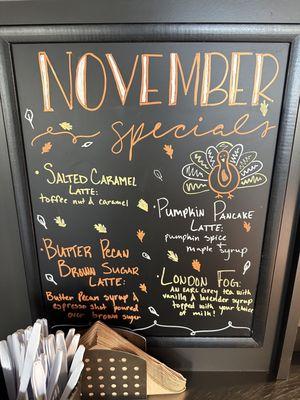 NOVEMBER
specials
• SALTED CARAMEL
LATTE:
toffee nut & caramel
• PUMPKIN PANCAKE
LATTE:
pumpkin spice
maple syrup
• BUTTER PECAN
BROWN SUGAR
LATTE:
Butter Pecan syrup &
espresso shot poured
over brown sugar
• LONDON FOG:
AN EARL GREY TEA WITH
vanilla & lavender syrup
topped with your choice
of milk!